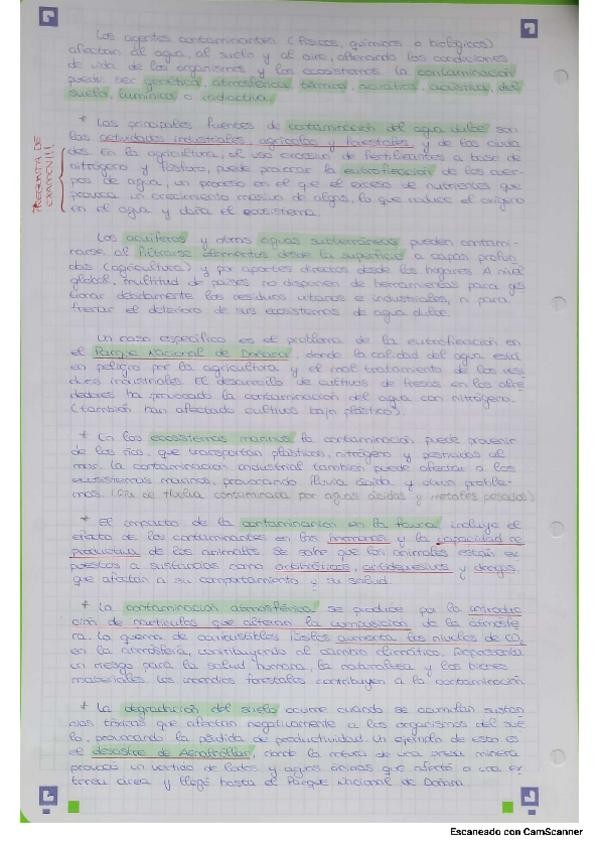 Los agentes contaminantes (físicos, químicos o biológicos)
afectan al agua, al suelo y al aire, alterando las condiciones
de vida de los organismos y los ecosistemas. La contaminación
puede ser genética, atmosférica, térmica, acuática, acústica, del
suelo, lumínica o radiactiva.
* Las principales fuentes de contaminación del agua dulce son
las actividades industriales, agrícolas y forestales y de las ciuda
des. En la agricultura, el uso excesivo de fertilizantes a base de
nitrógeno y fósforo, puede provocar la eutrofización de los cuer-
pos de agua, un proceso en el que el exceso de nutrientes que
provoca un crecimiento masivo de algas, lo que reduce el oxígeno
en el agua y daña el ecosistema.
PREGUNTA DE
EXAMEN!!!
Los acuíferos y otras aguas subterráneas pueden contami-
narse al filtrarse elementos desde la superficie a capas profun
das (agricultura) y por aportes directos desde los hogares. A nivel
global, multitud de países no disponen de herramientas para ges
tionar debidamente los residuos urbanos e industriales, ni para
frenar el deterioro de sus ecosistemas de agua dulce.
Un caso específico es el problema de la eutrofización en
el Parque Nacional de Doñana, donde la calidad del agua está
en peligro por la agricultura y el mal tratamiento de los resi
duos industriales. El desarrollo de cultivos de fresas en los alre
dedores ha provocado la contaminación del agua con nitrógeno.
(también han afectado cultivos bajo plástico).
* En los ecosistemas marinos la contaminación puede provenir
de los ríos, que transportan plásticos, nitrógeno y pesticidas al
mar. La contaminación industrial también puede afectar a los
ecosistemas marinos, provocando lluvia ácida y otros proble-
mas. (Ría de Huelva contaminada por aguas ácidas y metales pesados)
* El impacto de la contaminación en la fauna incluye el
efecto de los contaminantes en las hormonas y la capacidad re
productiva de los animales. Se sabe que los animales están ex
puestos a sustancias como antibióticos, antidepresivos y drogas,
que afectan a su comportamiento y su salud.
* La contaminación atmosférica se produce por la introduc
ción de partículas que alteran la composición de la atmósfe
ra. La quema de combustibles fósiles aumenta los niveles de CO₂
en la atmósfera, contribuyendo al cambio climático. Representa
un riesgo para la salud humana, la naturaleza y los bienes
materiales. Los incendios forestales contribuyen a la contaminación
* La degradación del suelo ocurre cuando se acumulan sustan
cias tóxicas que afectan negativamente a los organismos del sue
lo, provocando la pérdida de productividad. Un ejemplo de esto es
el desastre de Aznalcóllar, donde la rotura de una presa minera
provocó un vertido de lodos y aguas ácidas que afectó a una ex
tensa área y llegó hasta el Parque Nacional de Doñana.
Escaneado con CamScanner